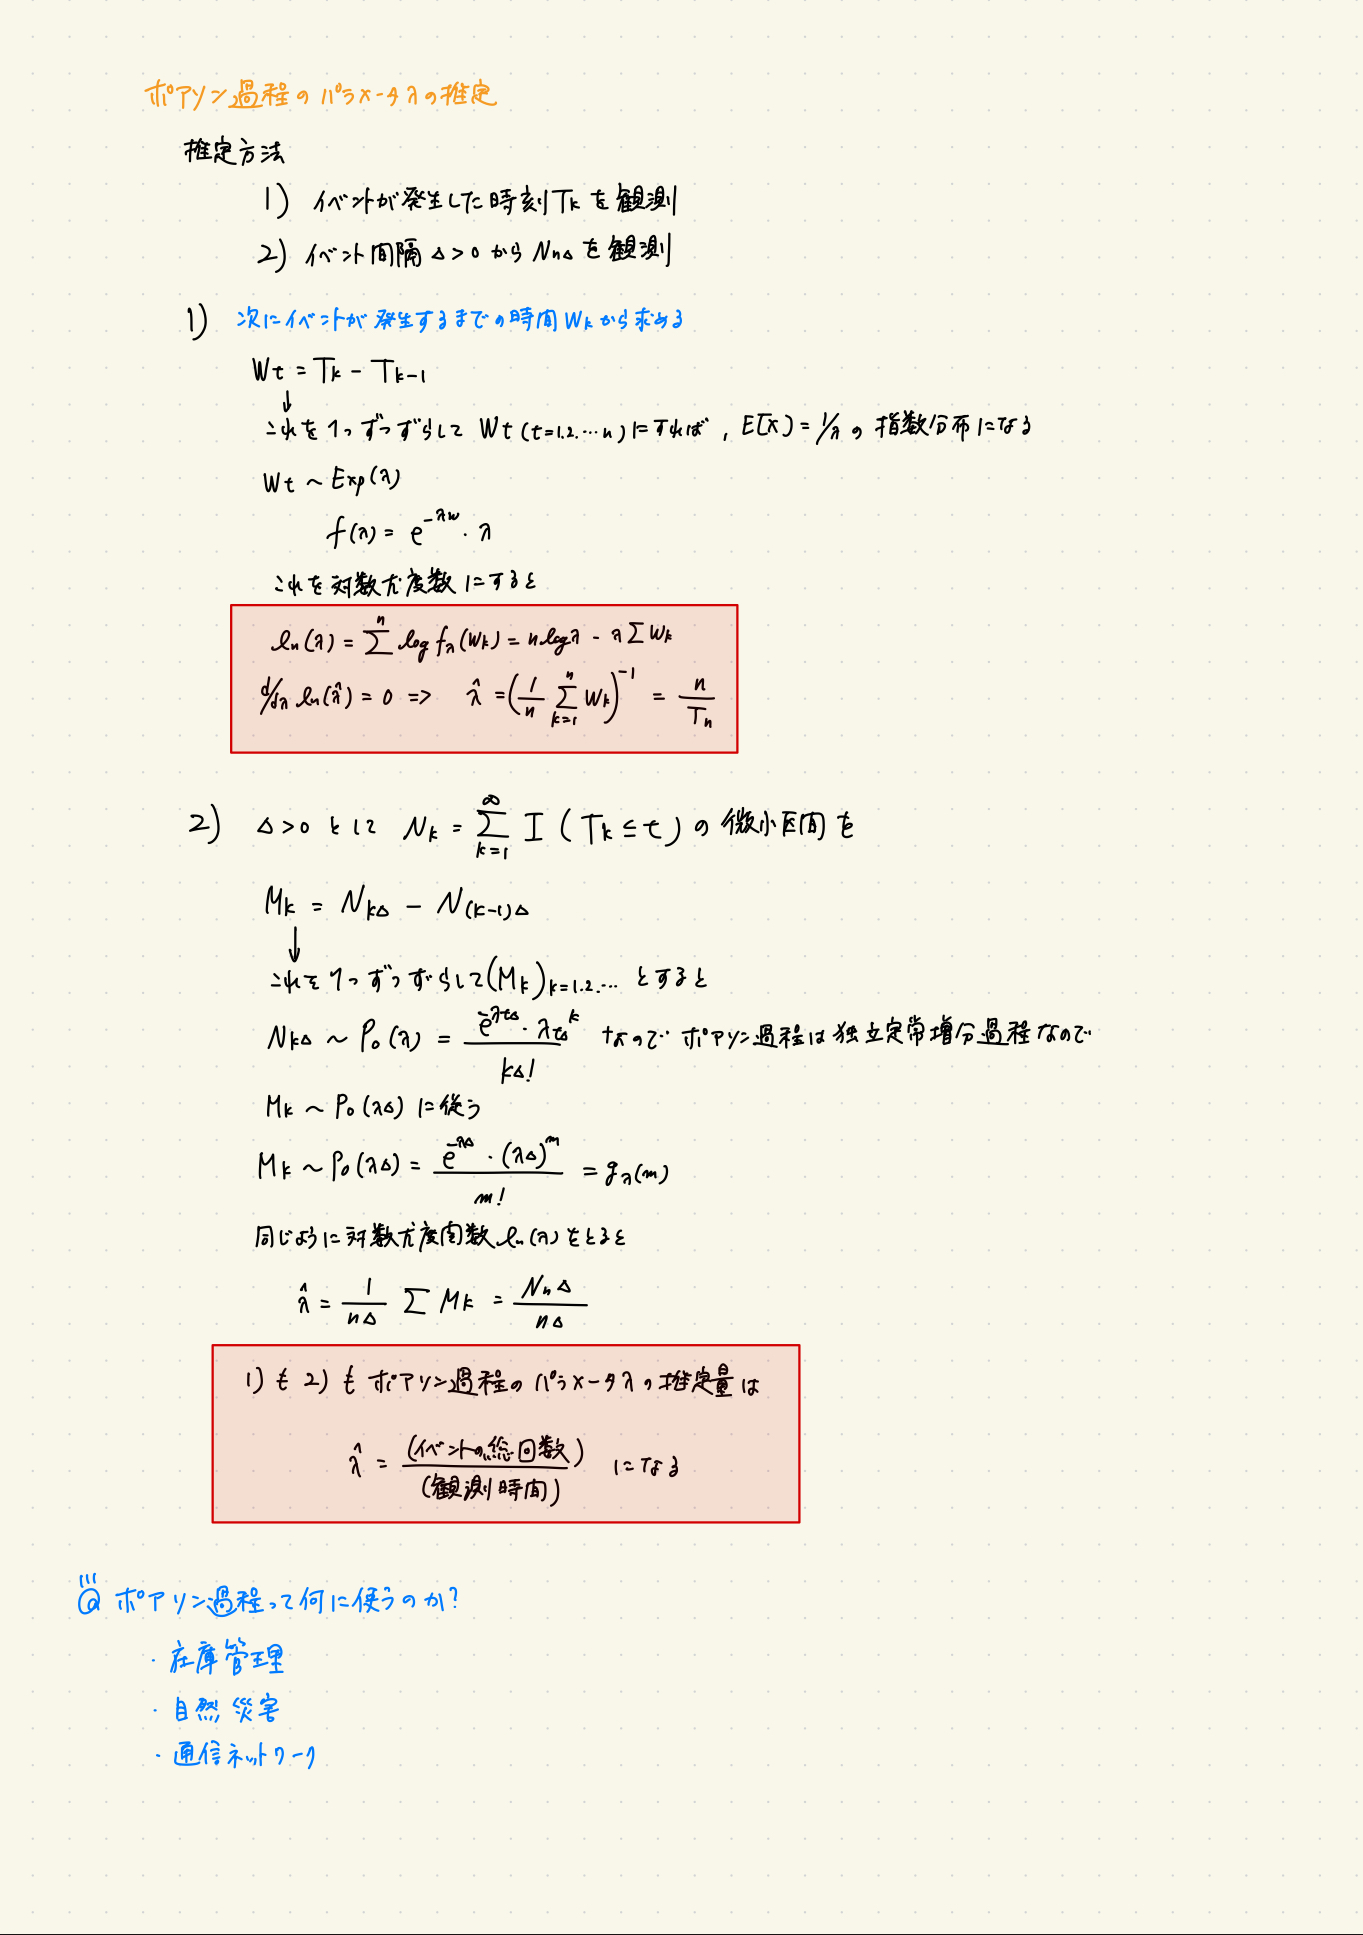 ポアソン過程のパラメータλの推定
推定方法
1) イベントが発生した時刻Tkを観測
2) イベント間隔 Δ>0 から NnΔ を観測
1) 次にイベントが発生するまでの時間Wkから求める
Wt = Tk - Tk-1
↓
これを1つずつずらして Wt (t=1.2.…n)にすれば, E[X]=1/λ の指数分布になる
Wt ~ Exp(λ)
f(λ) = e^{-λw} · λ
これを対数尤度数にすると
ln(λ) = Σ^n log fλ(Wk) = n log λ - λ Σ Wk
d/dλ ln(λ̂) = 0 => λ̂ = (1/n Σ_{k=1}^n Wk)^{-1} = n/Tn
2) Δ>0 として Nk = Σ_{k=1}^∞ I (Tk ≤ t) の微小区間を
Mk = NkΔ - N(k-1)Δ
↓
これを1つずつずらして(Mk)k=1.2.… とすると
NkΔ ~ Po(λ) = e^{-λtΔ} · λtΔ^k / kΔ! なので ポアソン過程は独立定常増分過程なので
Mk ~ Po(λΔ) に従う
Mk ~ Po(λΔ) = e^{-λΔ} · (λΔ)^m / m! = gλ(m)
同じように対数尤度関数 ln(λ)をとると
λ̂ = 1/nΔ Σ Mk = NnΔ/nΔ
1)も 2)も ポアソン過程のパラメータλの推定量は
λ̂ = (イベントの総回数)/(観測時間) になる
Q ポアソン過程って何に使うのか?
・在庫管理
・自然災害
・通信ネットワーク